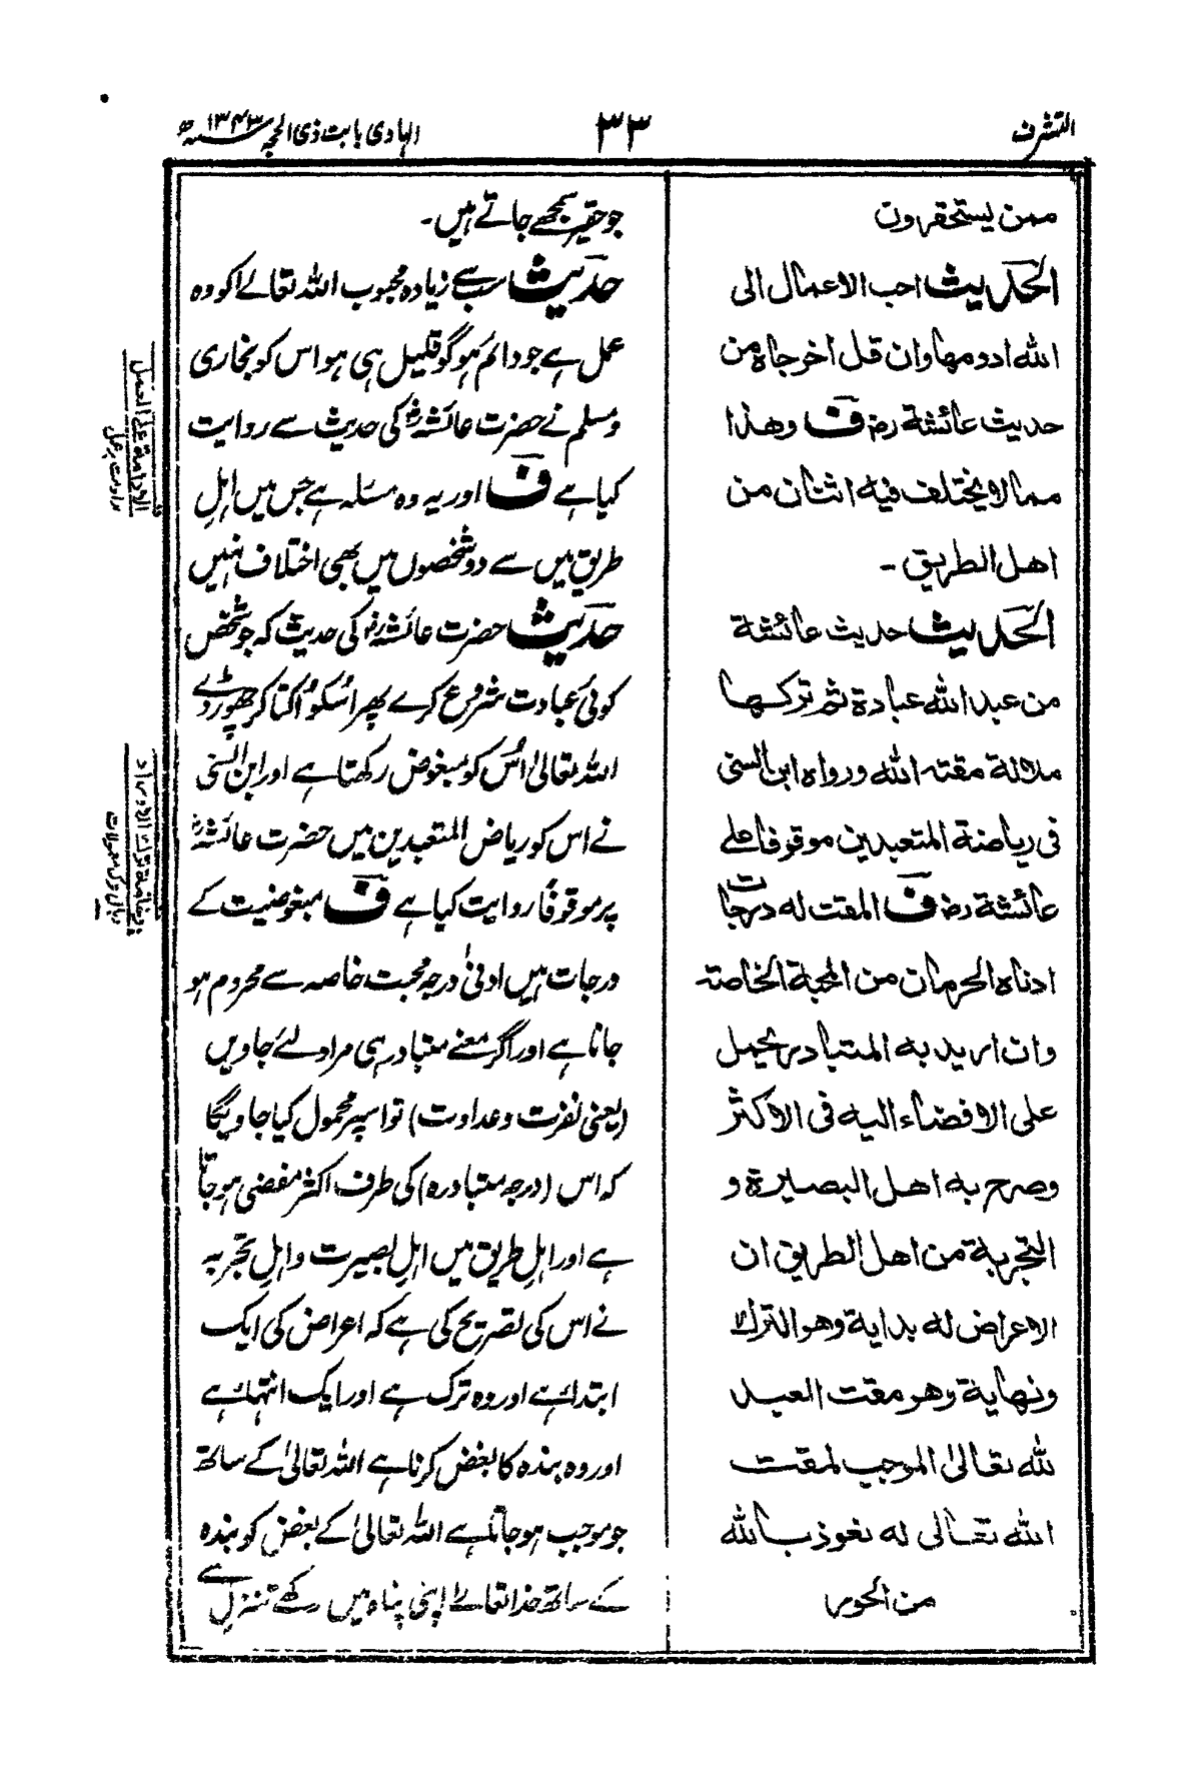 التشرف
۳۳
الہادی بابت ذی الحجہ سنہ ۱۳۴۳ھ
ممن يستحقرون
الحديث احب الاعمال الى
الله ادومها وان قل اخرجاه من
حديث عائشة رض ف وهذا
مما لا يختلف فيه اثنان من
اهل الطريق ۔
الحديث حديث عائشة
من عبد الله عبادة ثم تركها
ملالة مقته الله ورواه ابن السنى
فى رياضة المتعبدين موقوفا على
عائشة رض ف المقت له درجات
ادناه الحرمان من المحبة الخاصة
وان اريد به المتبادر يحمل
على الافضاء اليه فى الاكثر
وصرح به اهل البصيرة و
التجربة من اهل الطريق ان
الاعراض له بداية وهو الترك
ونهاية وهو مقت العبد
لله تعالىٰ الموجب لمقت
الله تعالى له نعوذ بالله
من الحور
جو حقیر سمجھے جاتے ہیں۔
حدیث سب سے زیادہ محبوب اللہ تعالےٰ کو وہ
عمل ہے جو دائم ہو گو قلیل ہی ہو اس کو بخاری
ومسلم نے حضرت عائشہؓ کی حدیث سے روایت
کیا ہے ف اور یہ وہ مسئلہ ہے جس میں اہلِ
طریق میں سے دو شخصوں میں بھی اختلاف نہیں
حدیث حضرت عائشہؓ کی حدیث کہ جو شخص
کوئی عبادت شروع کرے پھر اُسکو اُکتا کر چھوڑ دے
اللہ تعالیٰ اُس کو مبغوض رکھتا ہے اور ابن السنی
نے اس کو ریاض المتعبدین میں حضرت عائشہؓ
پر موقوفًا روایت کیا ہے ف مبغوضیت کے
درجات ہیں ادنیٰ درجہ محبت خاصہ سے محروم ہو
جانا ہے اور اگر معنے متبادر ہی مراد لئے جاویں
(یعنی نفرت وعداوت) تو اسپر محمول کیا جاویگا
کہ اس (درجہ متبادرہ) کی طرف اکثر مفضی ہو جاتا
ہے اور اہلِ طریق میں اہلِ بصیرت واہلِ تجربہ
نے اس کی تصریح کی ہے کہ اعراض کی ایک
ابتدا ہے اور وہ ترک ہے اور ایک انتہا ہے
اور وہ بندہ کا بغض کرنا ہے اللہ تعالیٰ کے ساتھ
جو موجب ہو جاتا ہے اللہ تعالیٰ کے بغض کو بندہ
کے ساتھ خدا تعالےٰ اپنی پناہ میں رکھے تنزل سے
الادامة على العمل
مداومت بر عمل
ترك الاوراد
معمولات